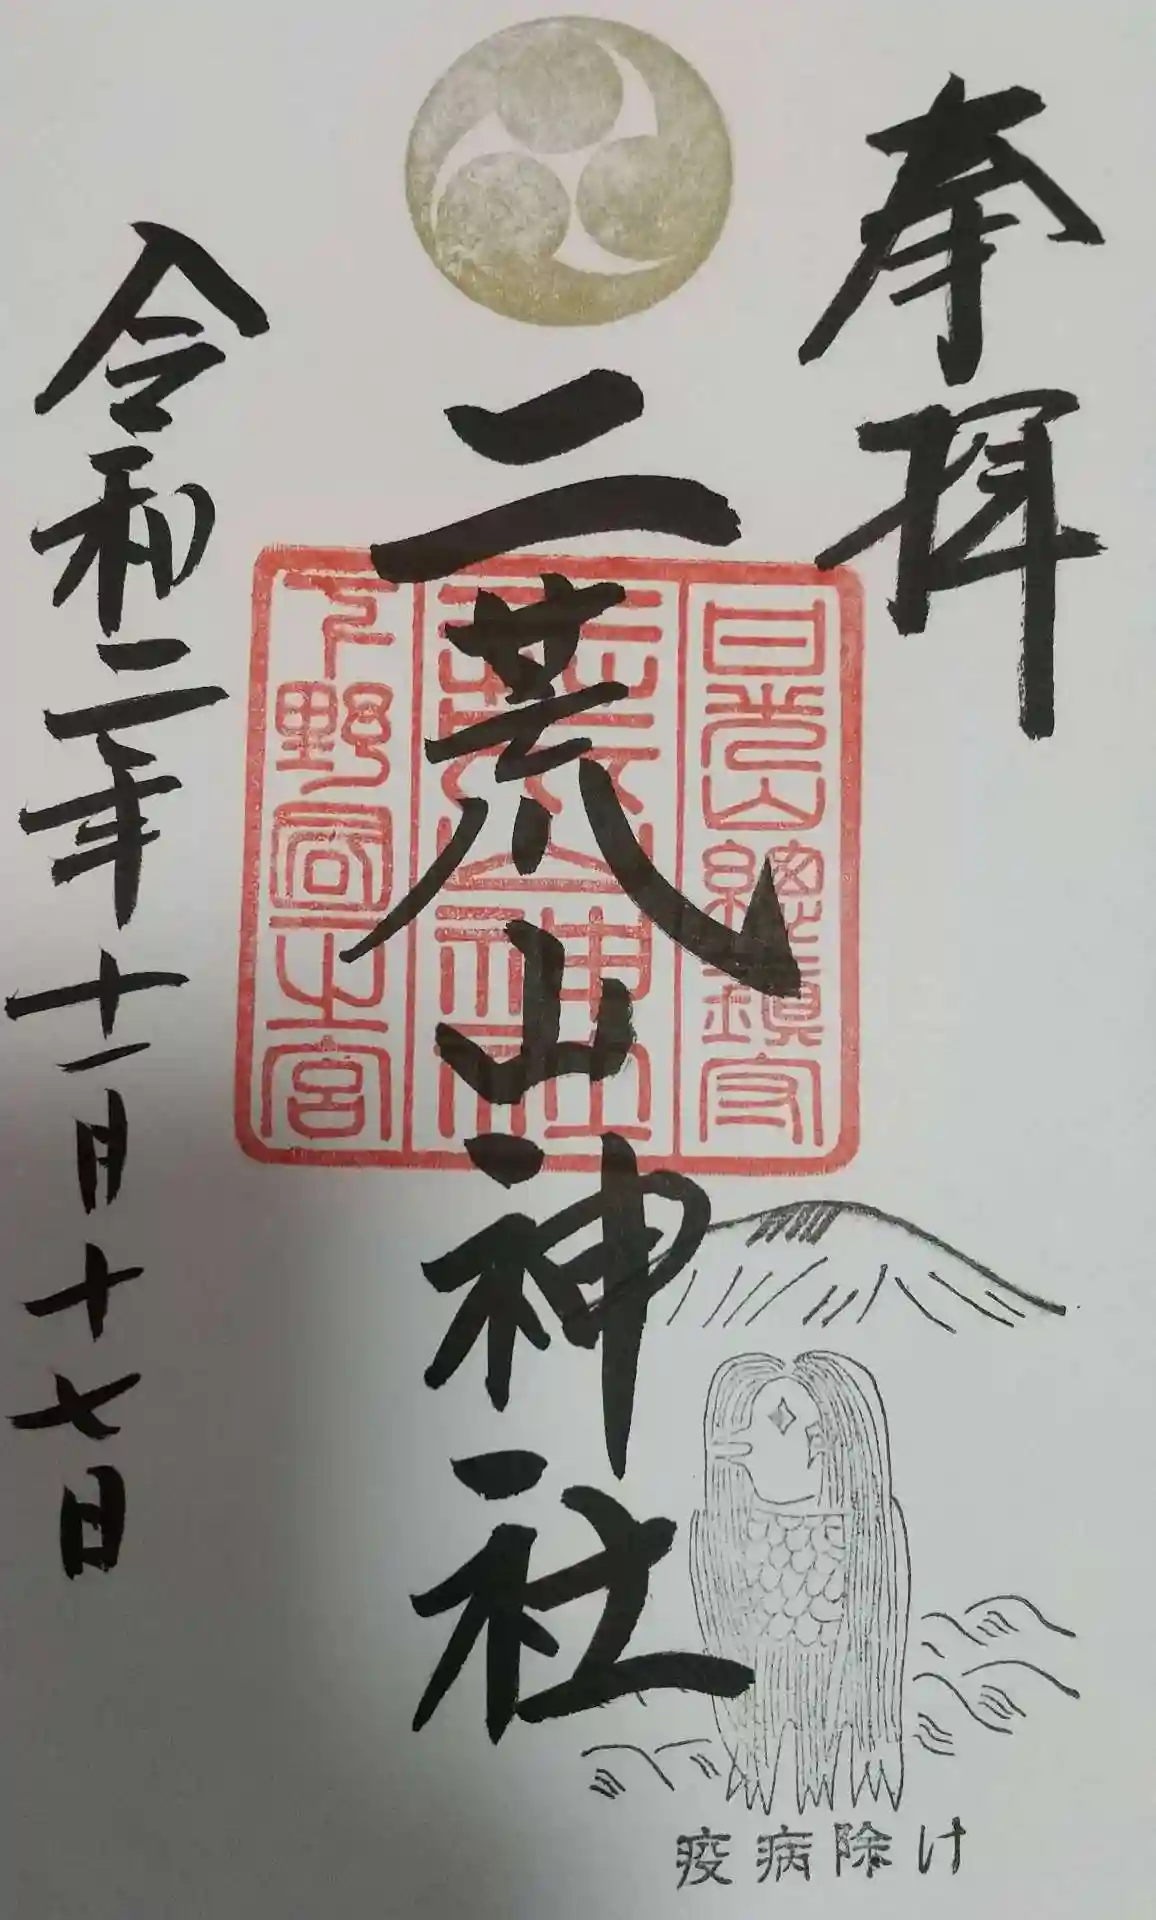 奉拝
日光山總鎮守
二荒山神社
下野國一之宮
令和二年十一月十七日
疫病除け